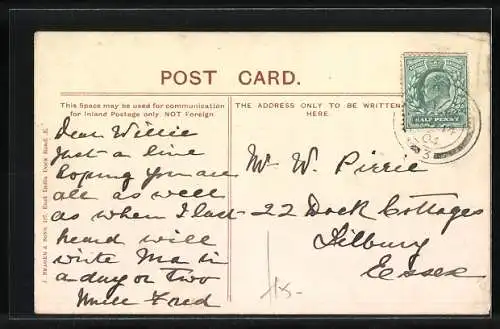 POST CARD.
This Space may be used for communication
for Inland Postage only. NOT Foreign
THE ADDRESS ONLY TO BE WRITTEN
HERE.
HALF PENNY
04
3
Dear Willie
Just a line
hoping you are
all as well
as when I last
heard will
write Ma in
a day or two
Fred
Mr W. Pirrie
22 Dock Cottages
Tilbury
Essex
& SONS, 197, East India Dock Road, E.